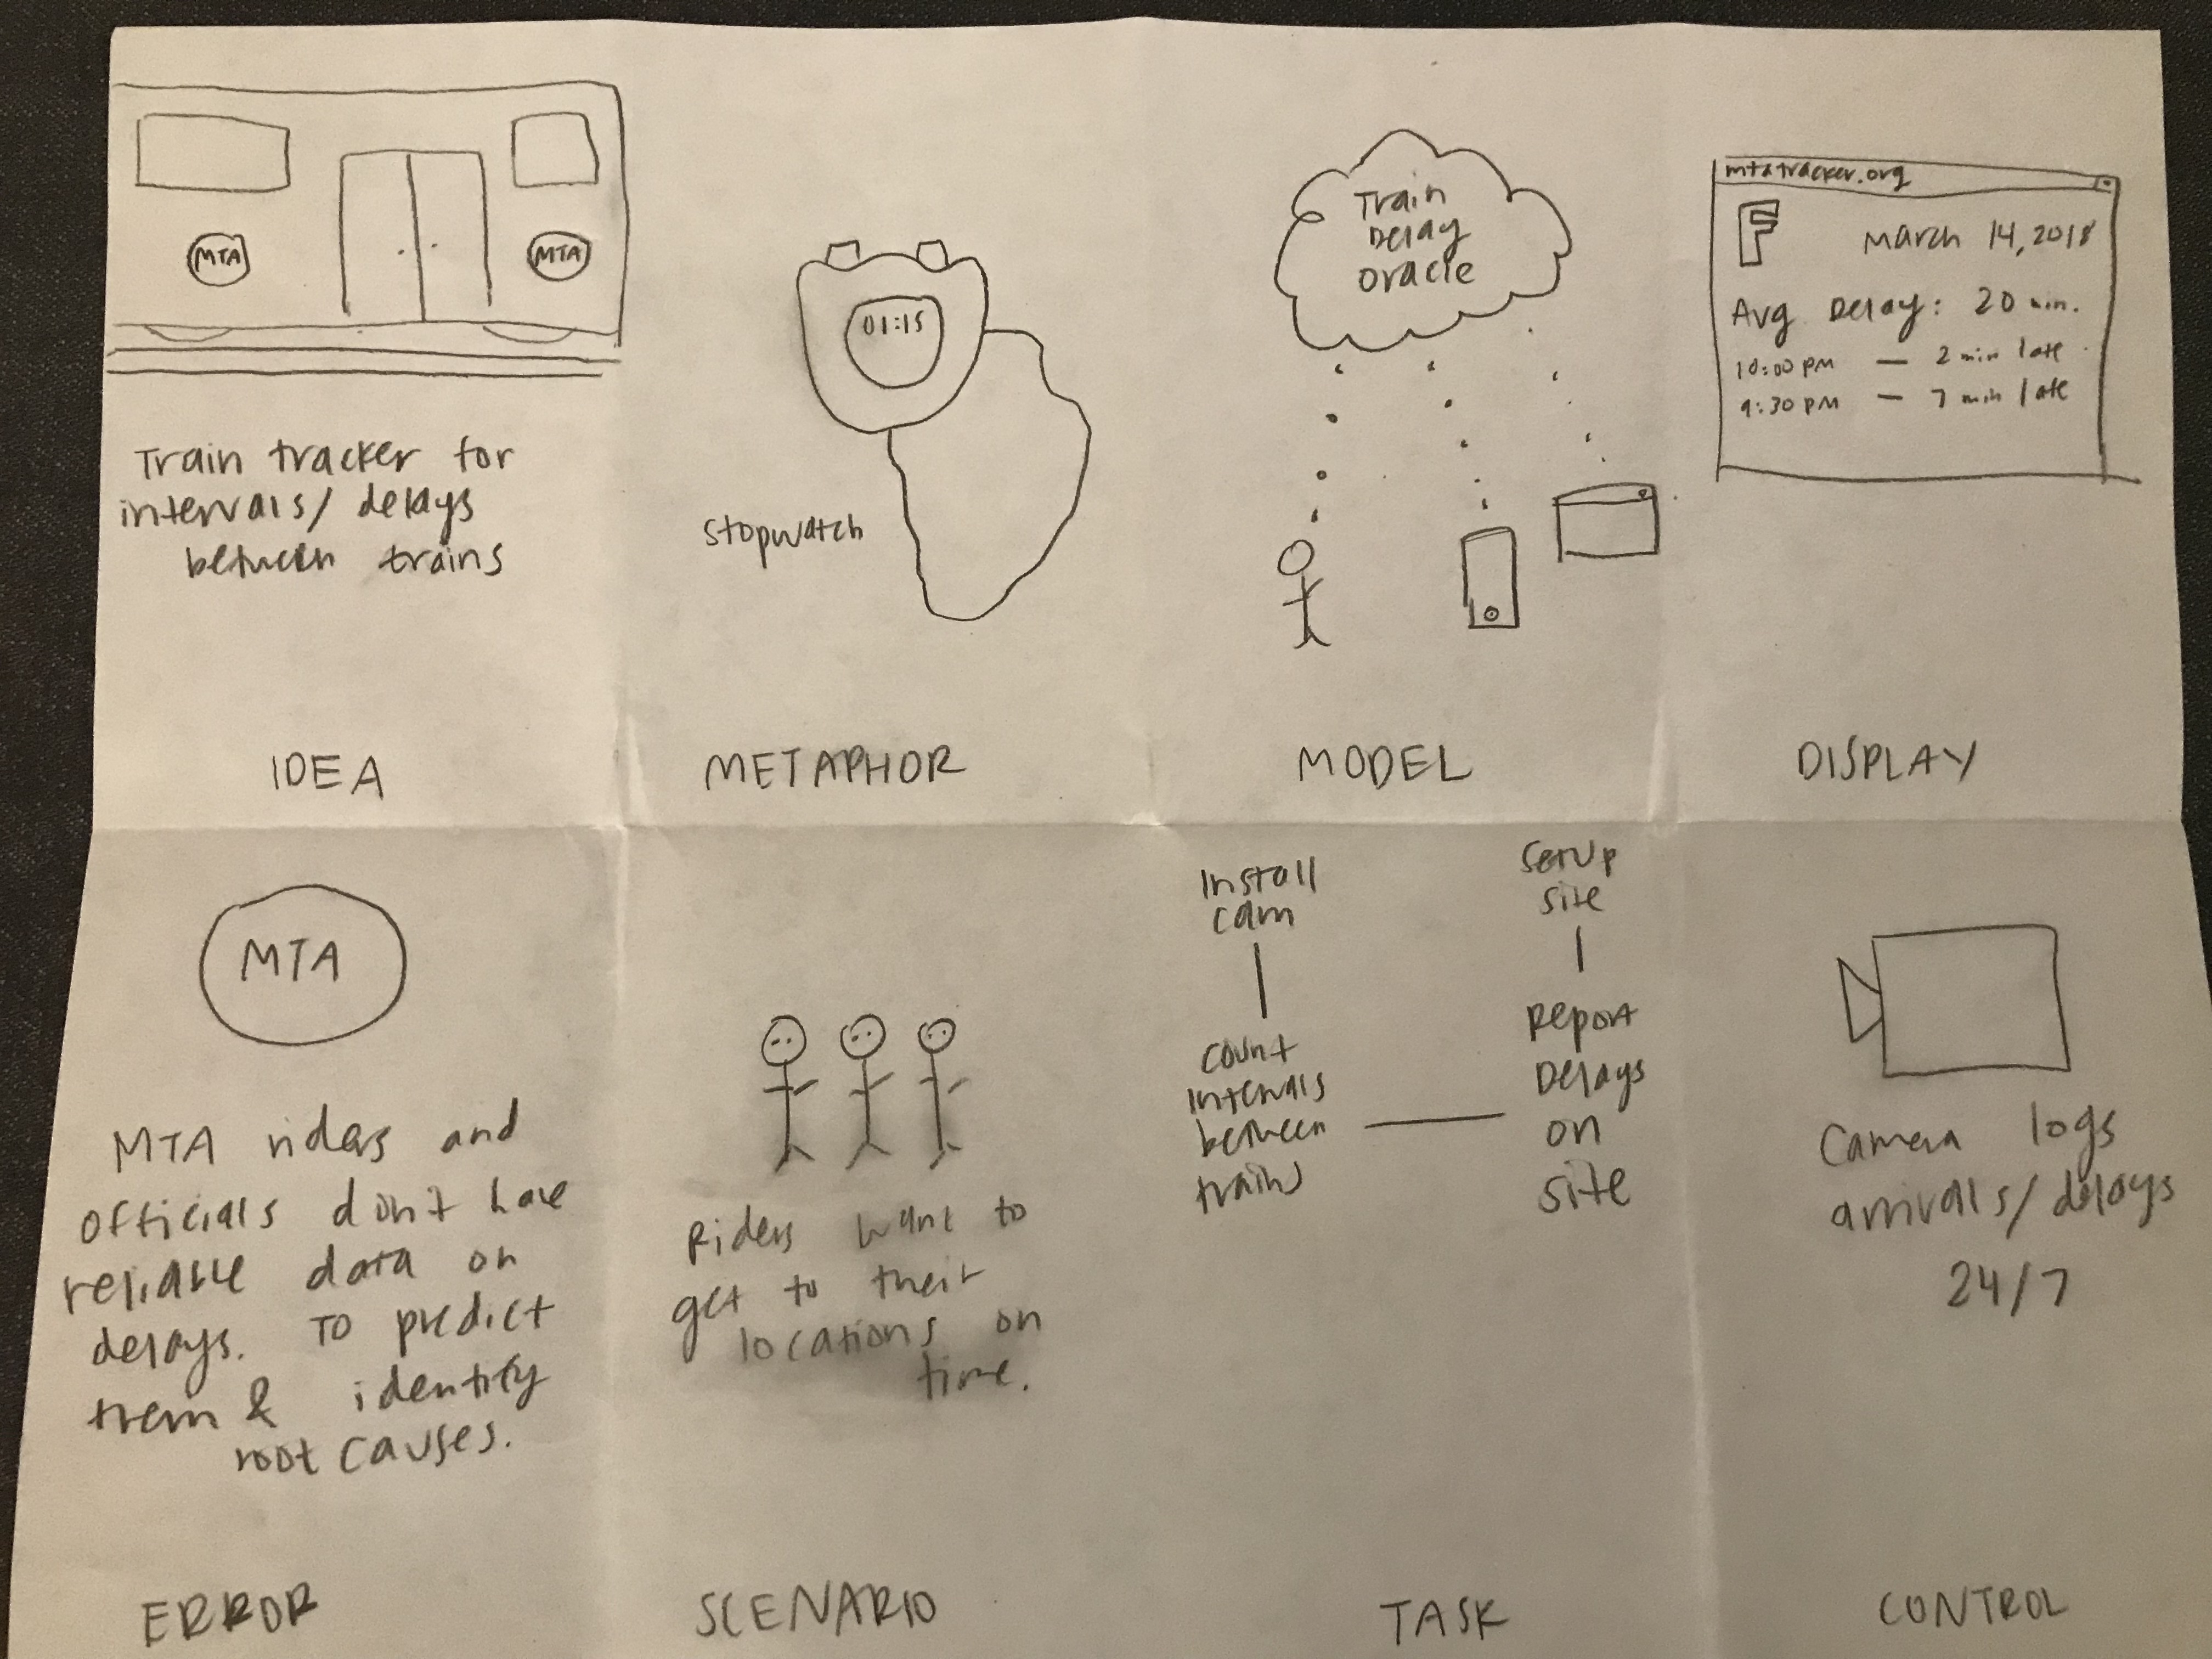 MTA
MTA
Train tracker for
intervals/delays
between trains
IDEA
01:15
stopwatch
METAPHOR
Train
Delay
Oracle
MODEL
mtatracker.org
F
March 14, 2018
Avg Delay: 20 min.
10:00 pm — 2 min late
9:30 pm — 7 min late
DISPLAY
MTA
MTA riders and
officials don't have
reliable data on
delays. To predict
them & identify
root causes.
ERROR
Riders want to
get to their
locations on
time.
SCENARIO
Install
cam
count
intervals
between
trains
Setup
site
Report
Delays
on
site
TASK
Camera logs
arrivals/delays
24/7
CONTROL